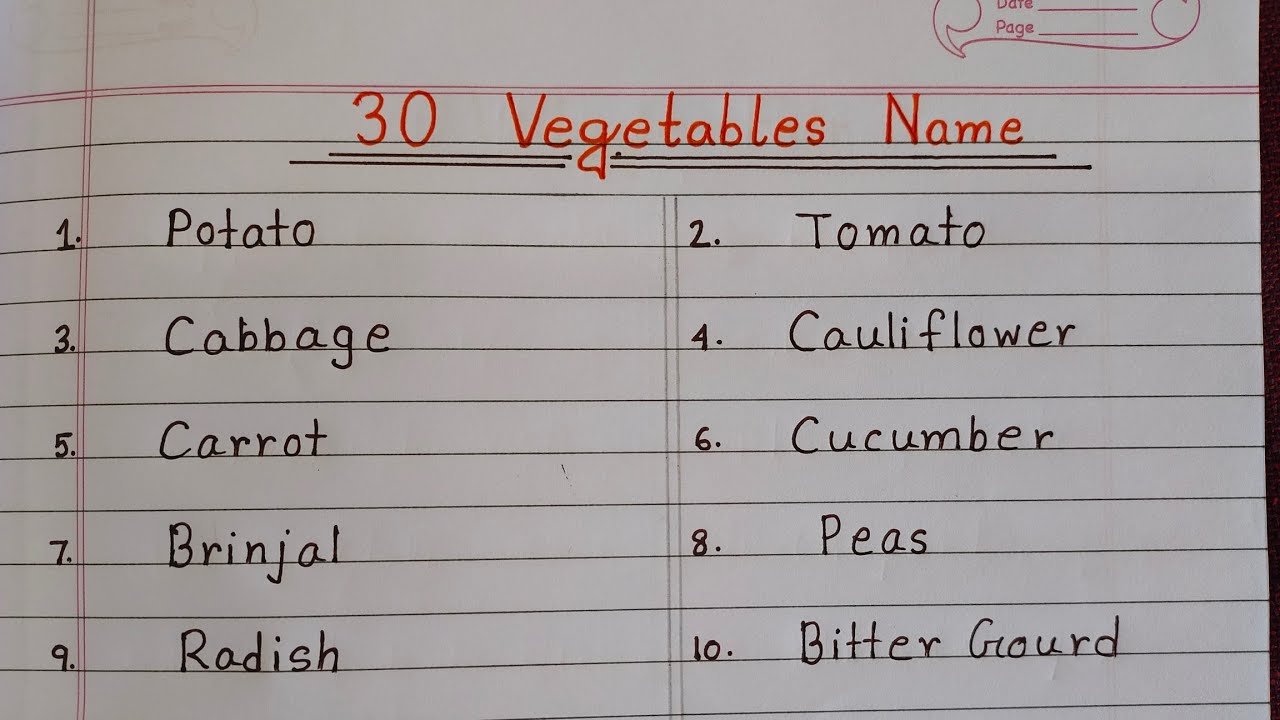 Date
Page
30 Vegetables Name
1. Potato 2. Tomato
3. Cabbage 4. Cauliflower
5. Carrot 6. Cucumber
7. Brinjal 8. Peas
9. Radish 10. Bitter Gourd